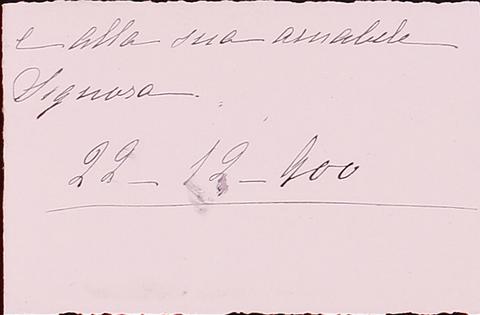 e alla sua amabile
Signora.
22 - 12 - 900